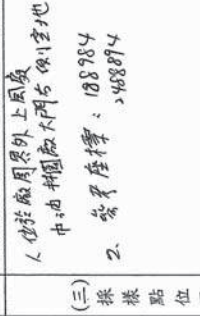 (三)採樣點位
1.位於廠周界外上風處
中油桃園廠大門右側空地
2.參考座標：188984
2488894